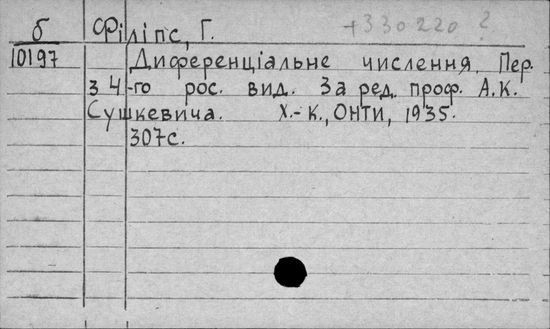 б Філіпс, Г. +330220 ?
10197 Диференціальне числення. Пер.
з 4-го рос. вид. За ред. проф. А.К.
Сушкевича. Х.-К., ОНТИ, 1935.
307с.